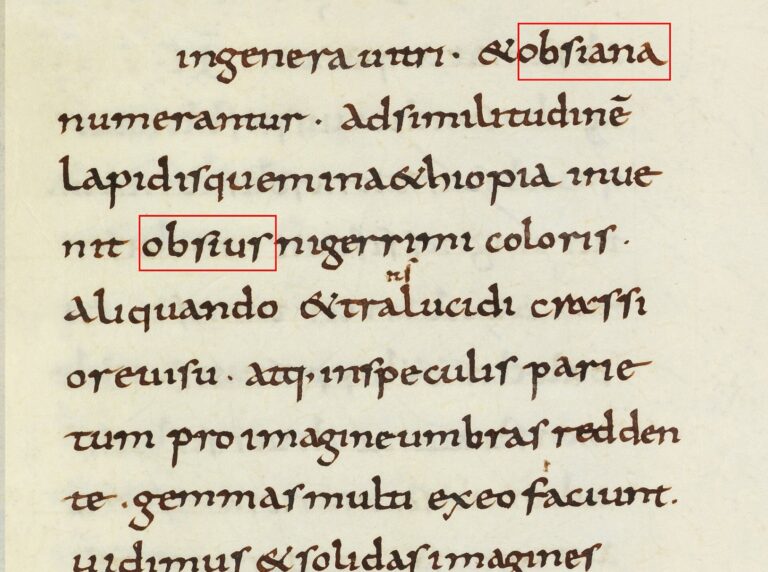 ingenera uitri · & obsiana
numerantur · Adsimilitudinē
lapidisquem ina&hiopia inue
nit obsius nigerrimi coloris ·
Aliquando &tralucidi crassi
ns
ore uisu · atq; inspeculis parie
tum pro imagine umbras redden
te · gemmas multi exeo faciunt .
uidimus & solidas imagines